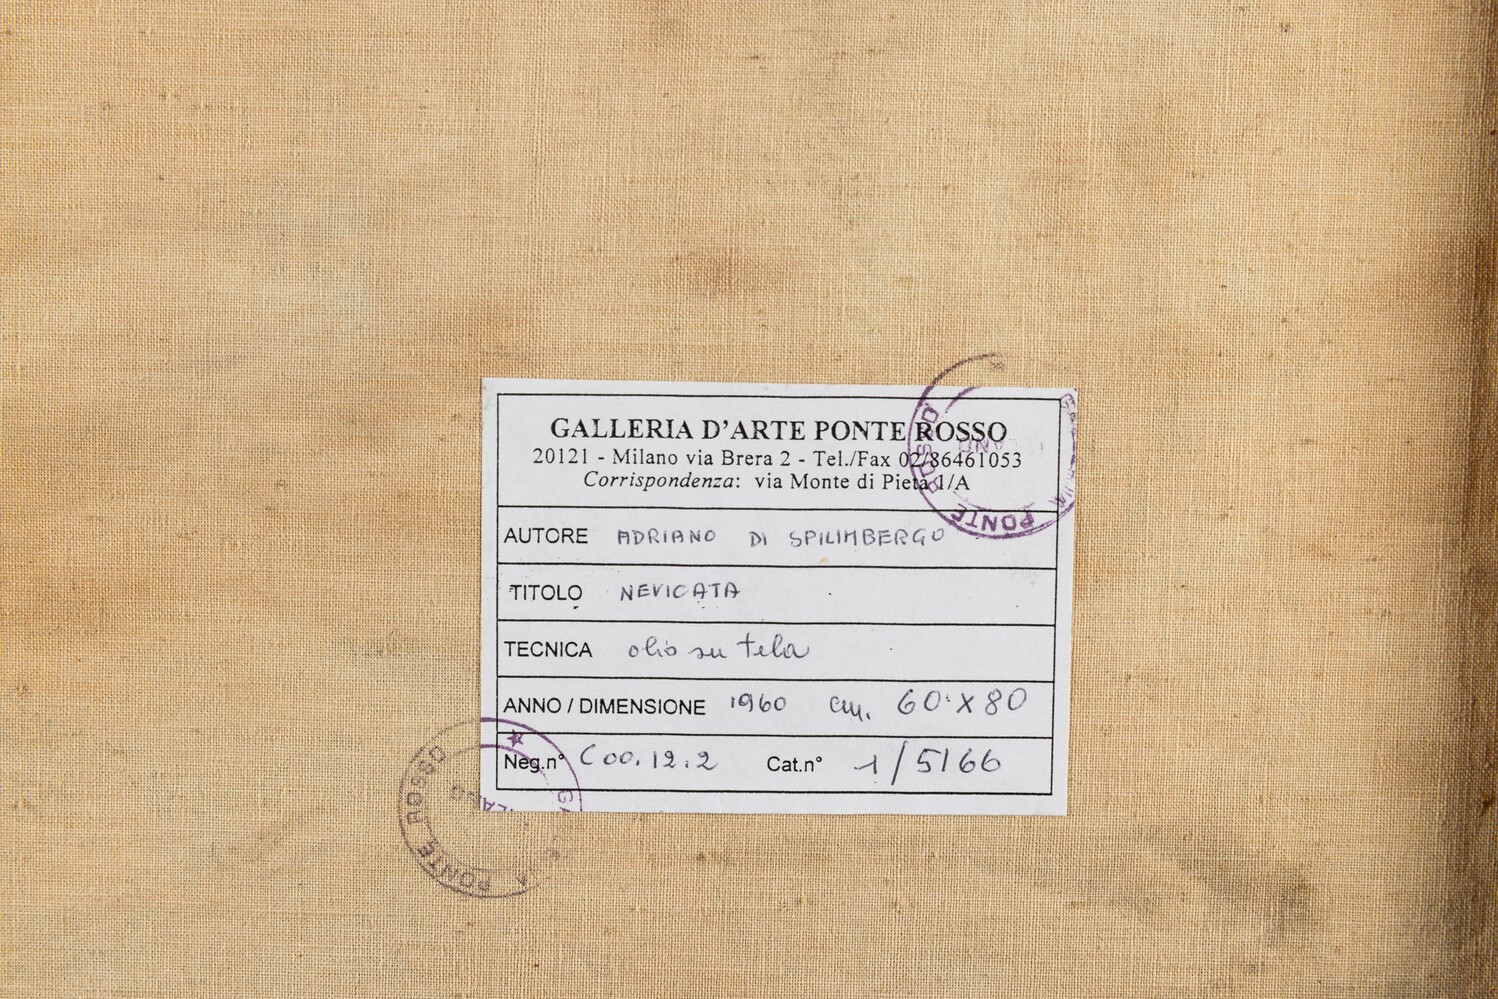 GALLERIA D'ARTE PONTE ROSSO
20121 - Milano via Brera 2 - Tel./Fax 02/86461053
Corrispondenza: via Monte di Pietà 1/A
AUTORE ADRIANO DI SPILIMBERGO
TITOLO NEVICATA
TECNICA olio su tela
ANNO / DIMENSIONE 1960 cm. 60 x 80
Neg.n° C00.12.2 Cat.n° 1/5166
PONTE ROSSO
PONTE ROSSO